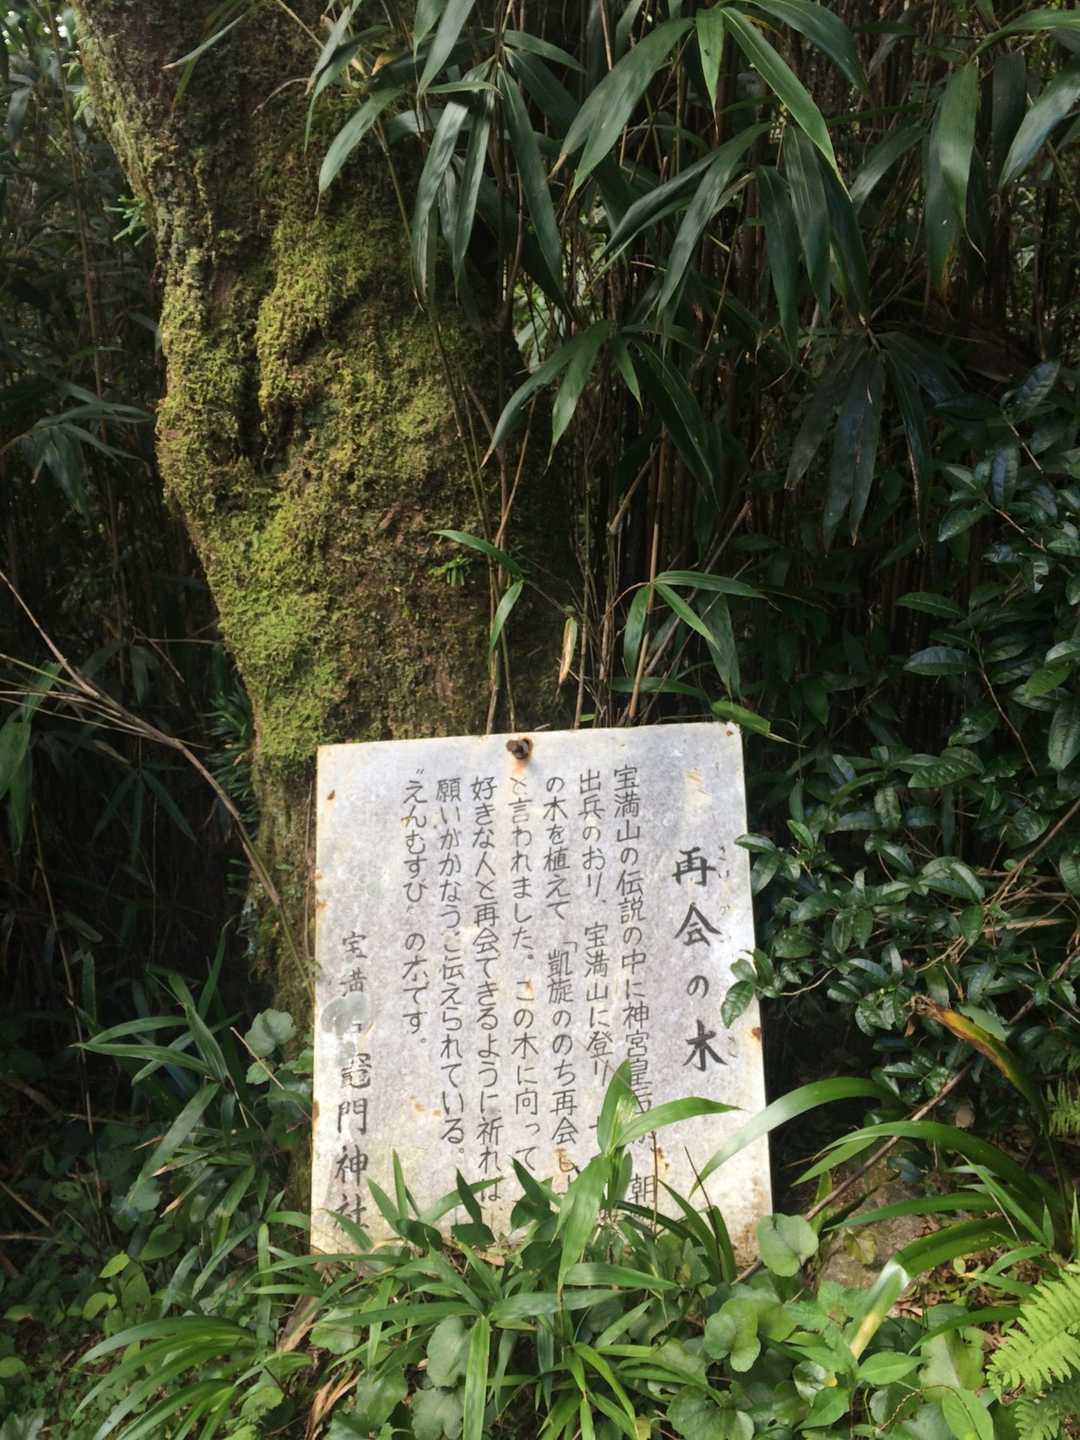 再会の木
宝満山の伝説の中に神宮皇后 朝
出兵のおり、宝満山に登り
の木を植えて「凱旋ののち再会
と言われました。この木に向って
好きな人と再会できるように祈れば、
願いがかなうご伝えられている。
"えんむすび"の木です。
宝満 竈門神社